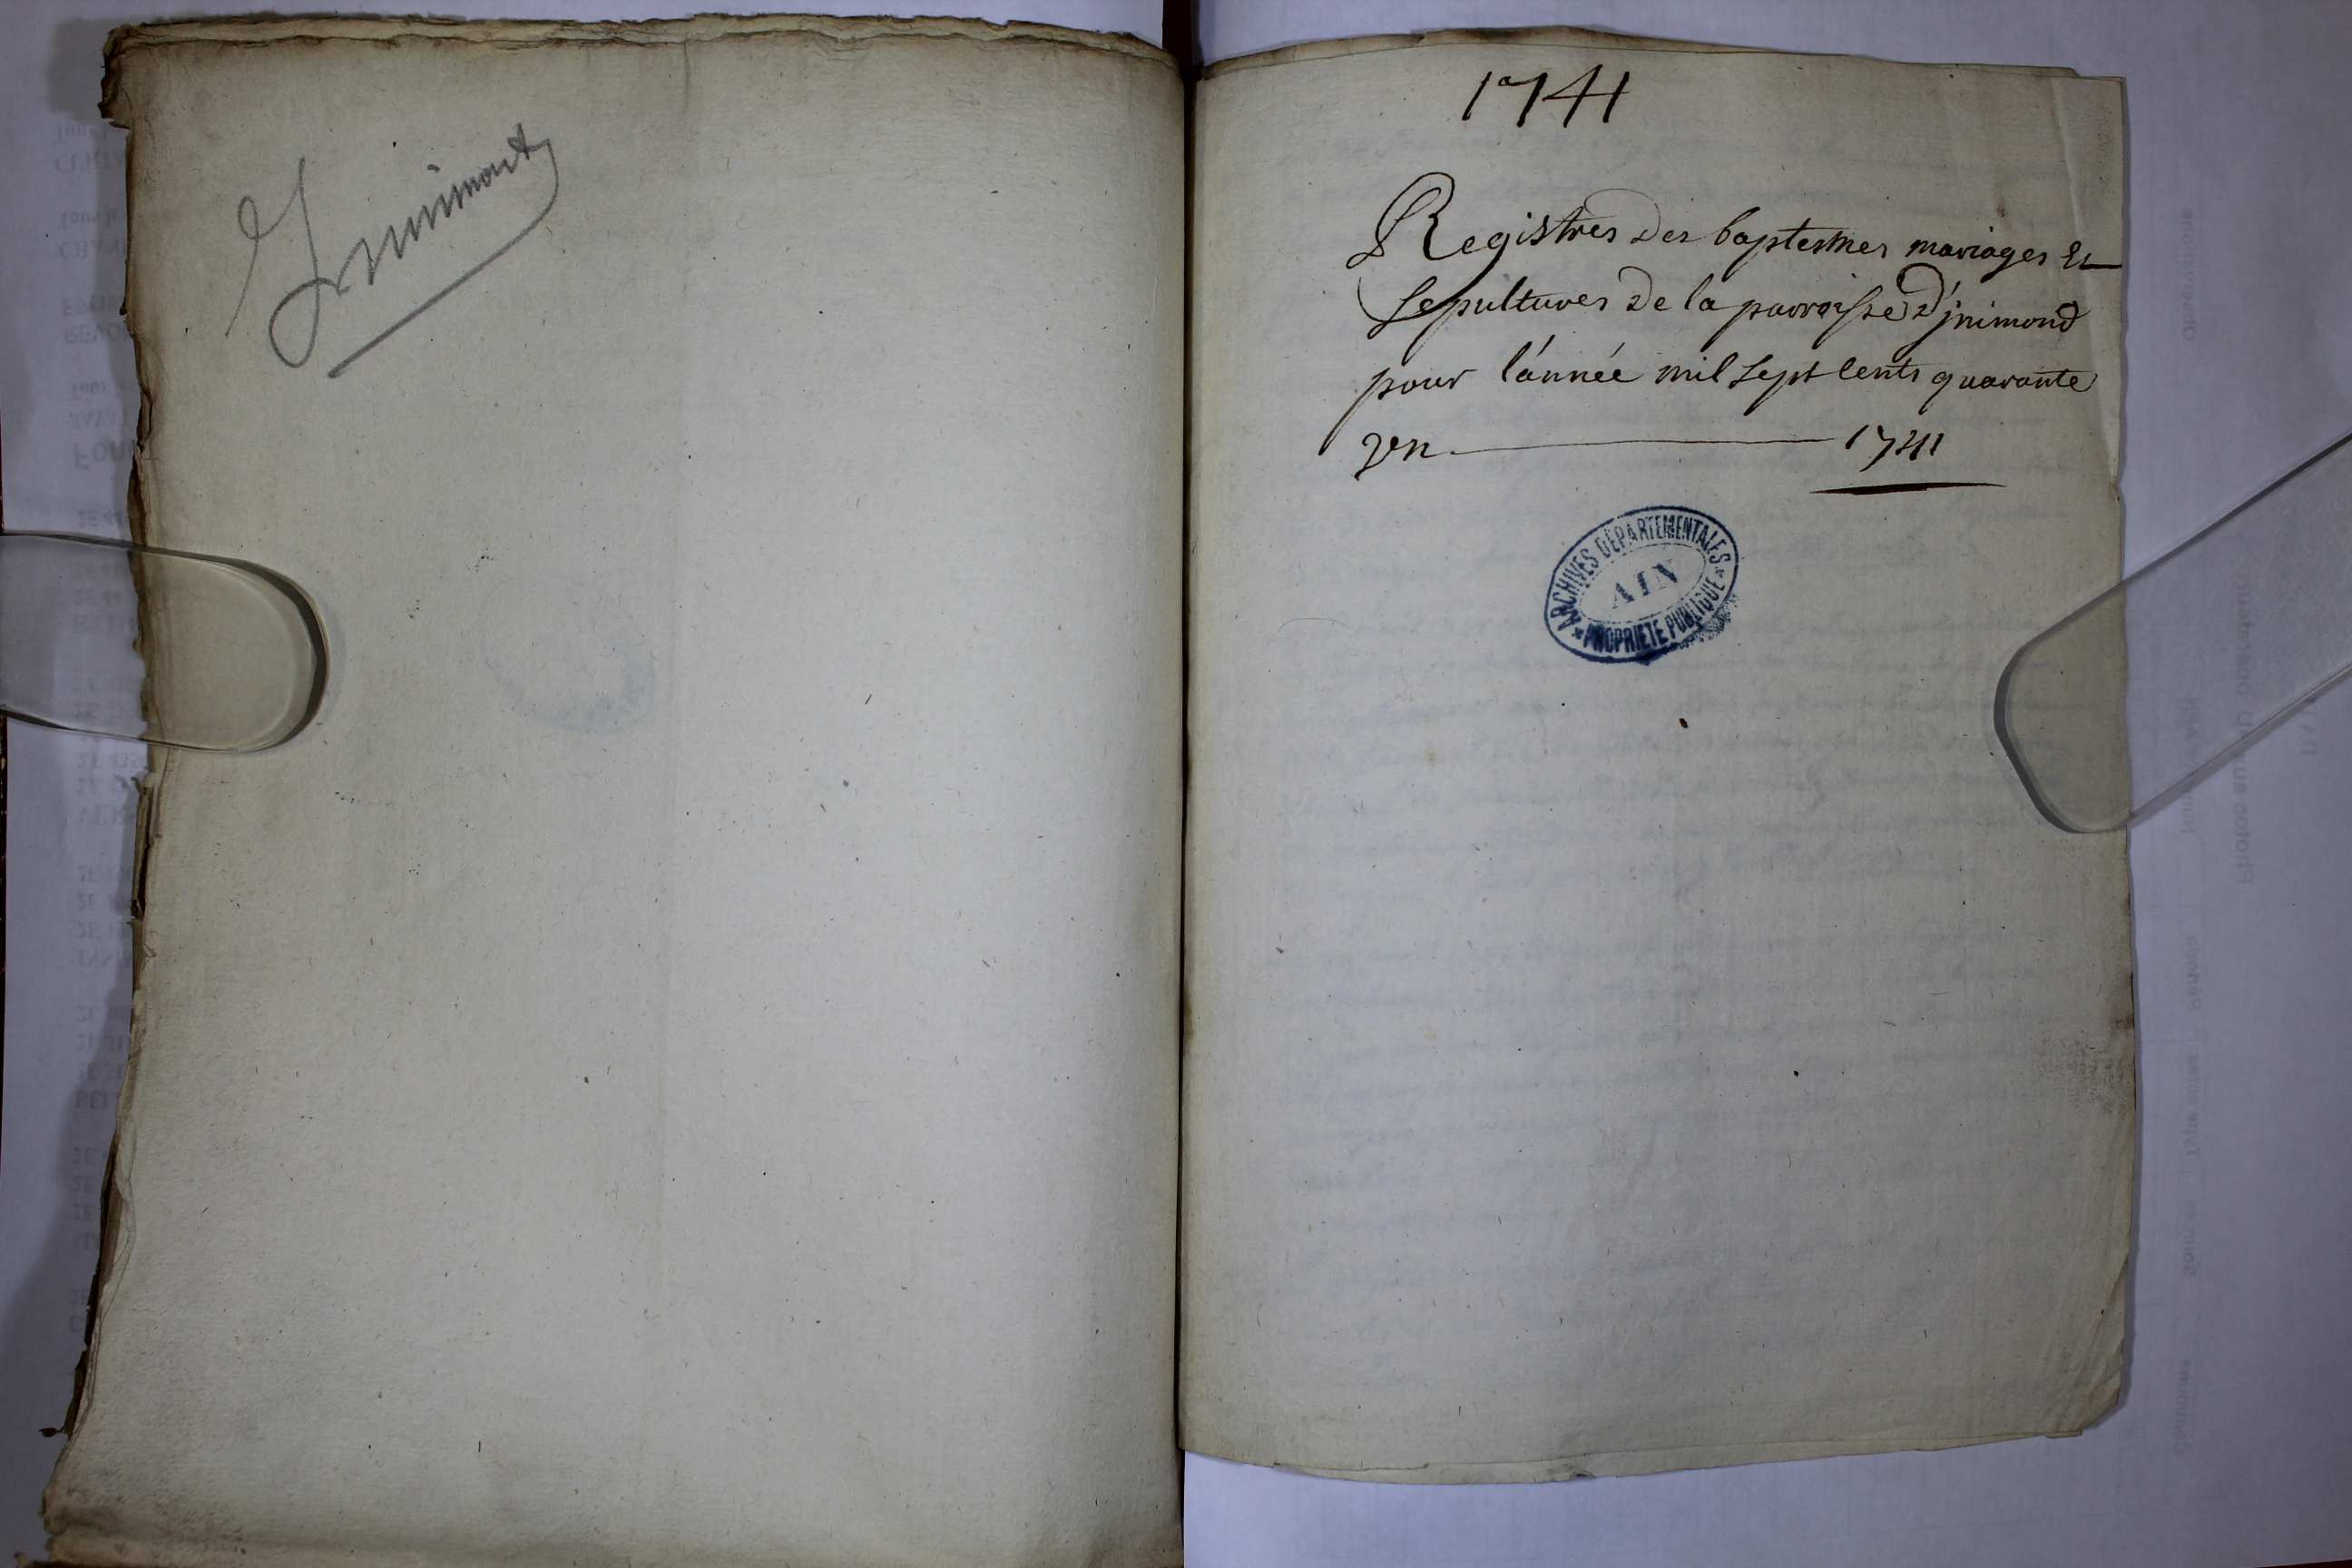 Innimont
1741
Registres des baptesmes mariages et
sepultures de la parroisse d'jnimond
pour l'année mil sept cents quarante
yen 1741
ARCHIVES DÉPARTEMENTALES
AIN
PROPRIÉTÉ PUBLIQUE